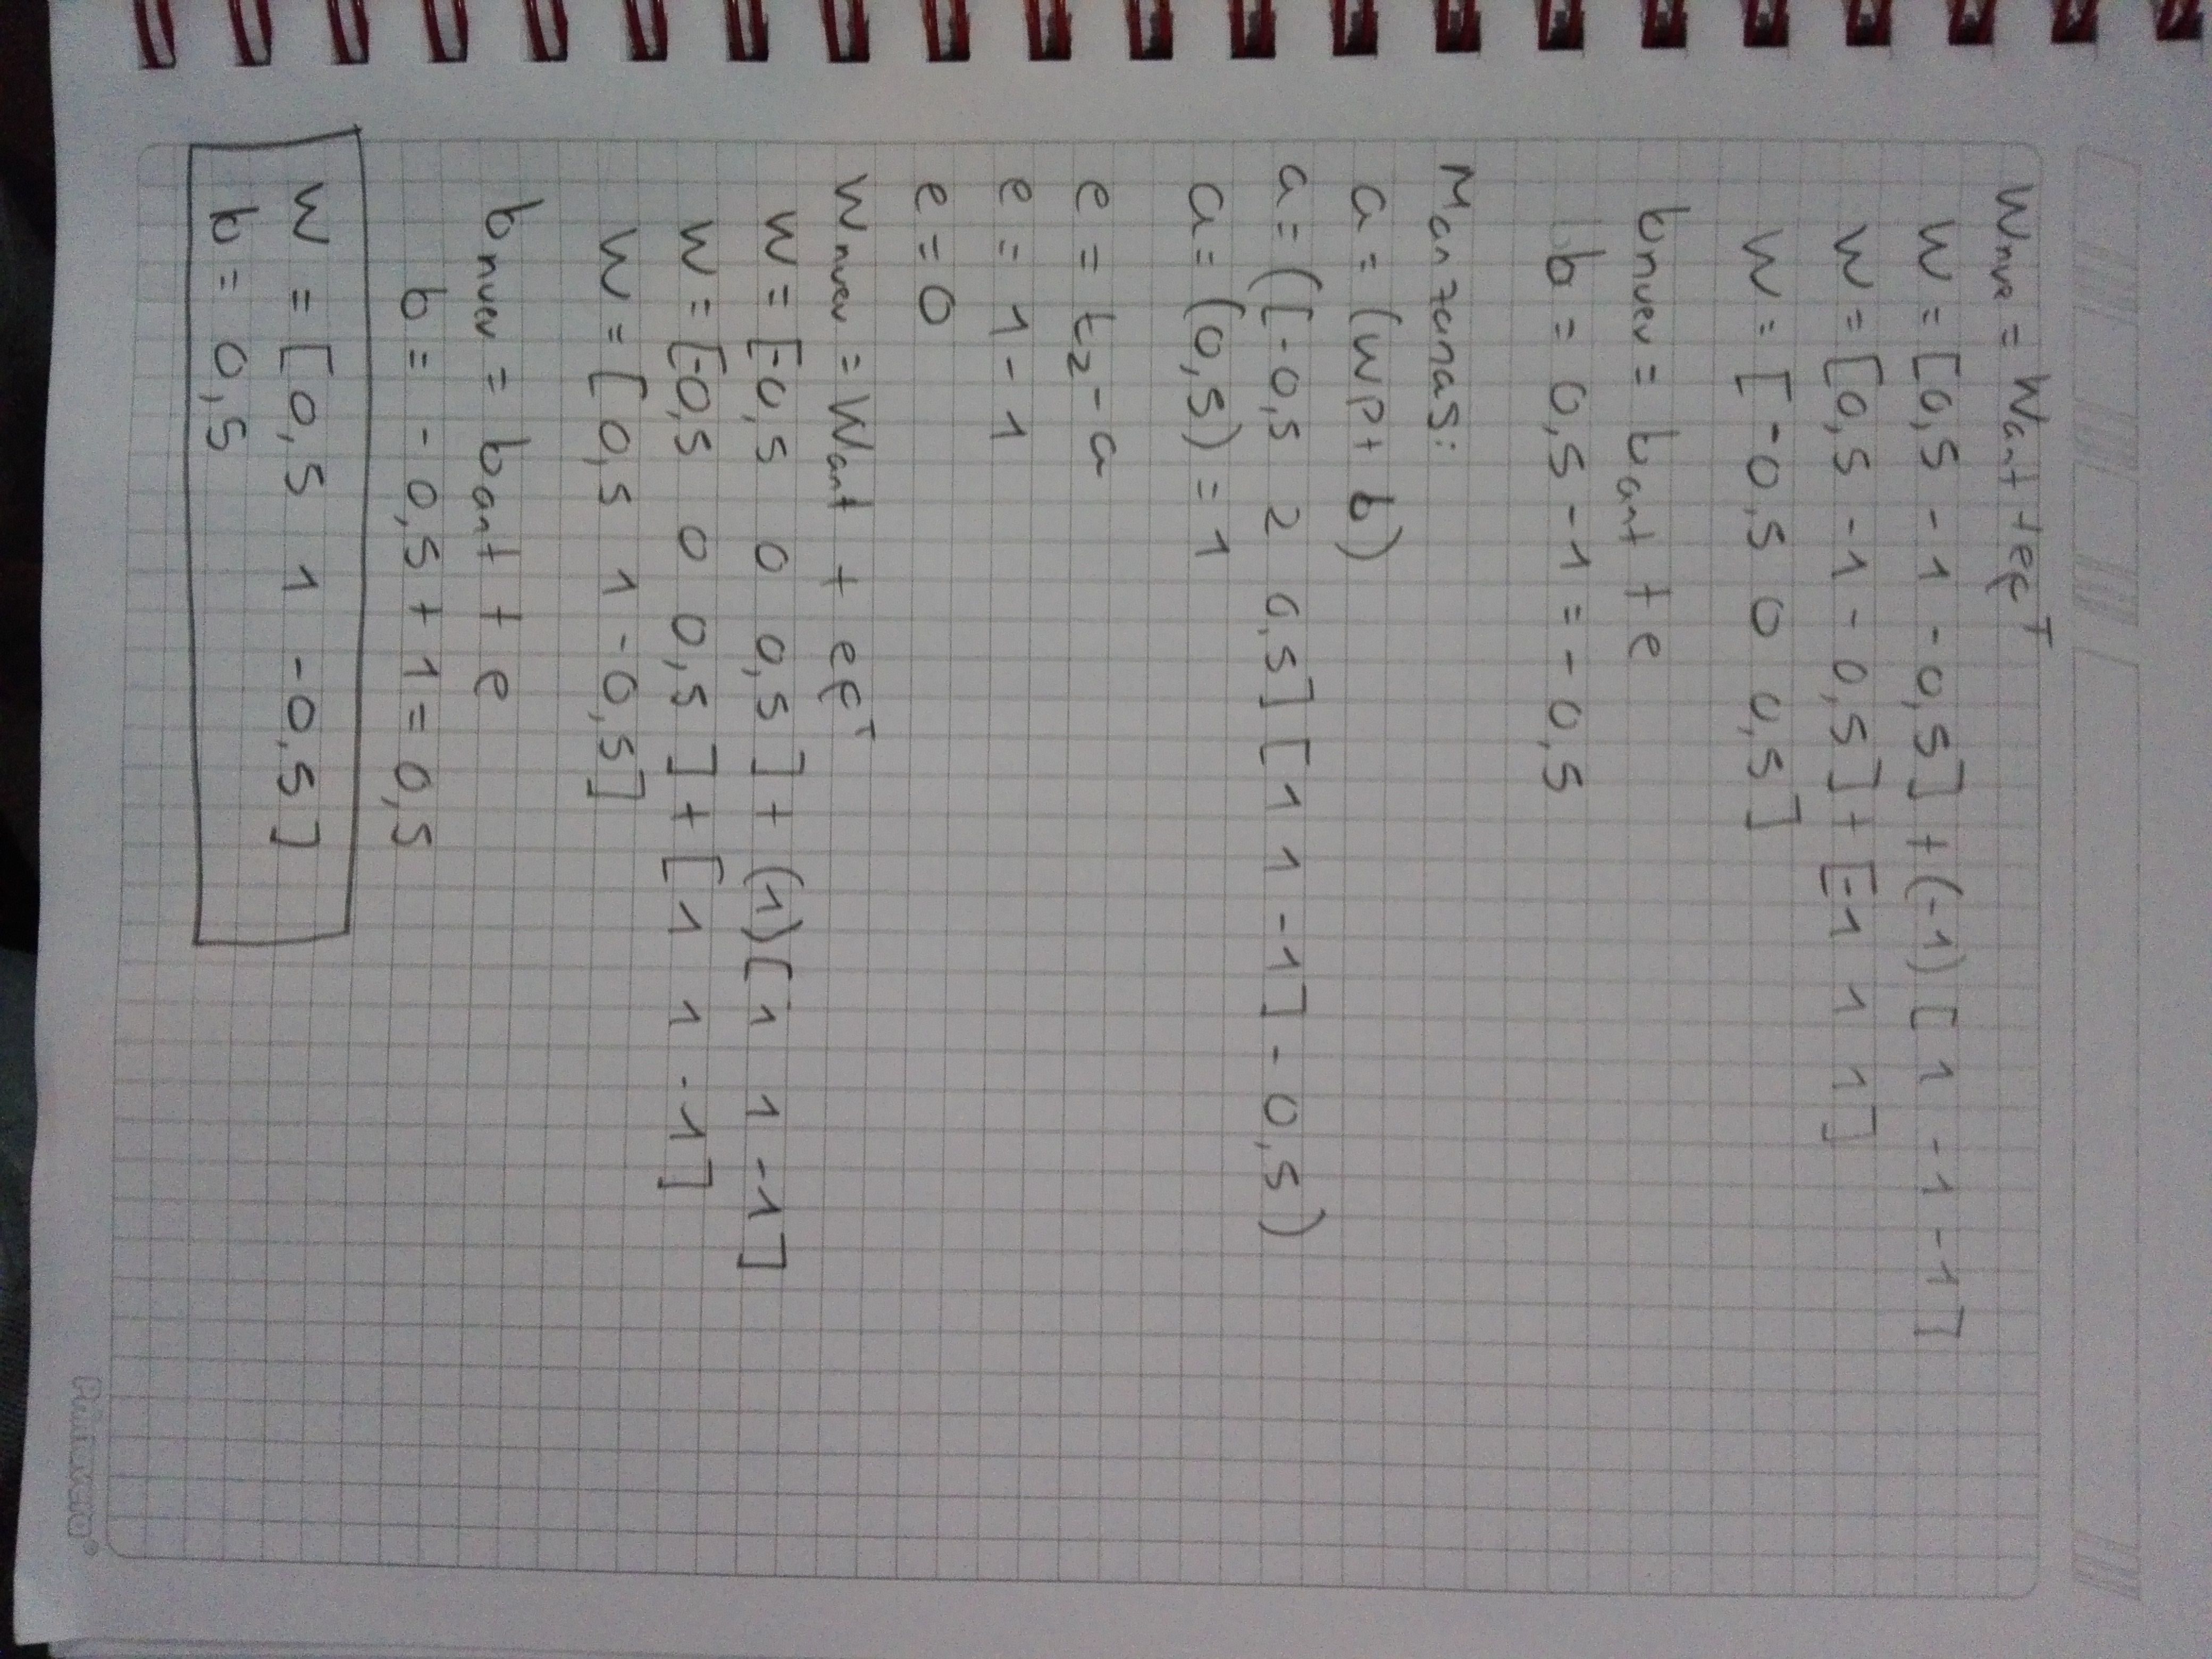 Wnue = Want + eφᵀ
W = [0,5 -1 -0,5] + (-1) [1 -1 -1]
W = [0,5 -1 -0,5] + [-1 1 1]
W = [-0,5 0 0,5]
bnuev = bant + e
b = 0,5 - 1 = -0,5
Manzanas:
a = (WP + b)
a = ([-0,5 2 0,5] [1 1 -1] - 0,5)
a = (0,5) = 1
e = t₂ - a
e = 1 - 1
e = 0
Wnuev = Want + eφᵀ
W = [-0,5 0 0,5] + (1) [1 1 -1]
W = [-0,5 0 0,5] + [1 1 -1]
W = [0,5 1 -0,5]
bnuev = bant + e
b = -0,5 + 1 = 0,5
W = [0,5 1 -0,5]
b = 0,5
Primavera®